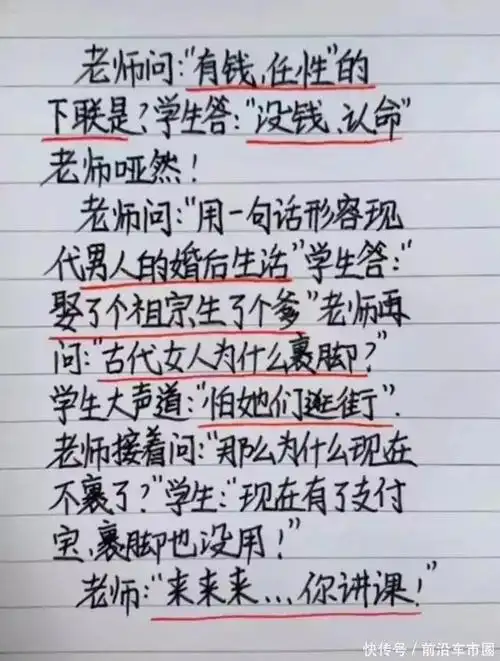 老师问:“有钱、任性”的
下联是?学生答:“没钱、认命”
老师哑然!
老师问:“用一句话形容现
代男人的婚后生活”学生答:“
娶了个祖宗,生了个爹”老师再
问:“古代女人为什么裹脚?”
学生大声道:“怕她们逛街”.
老师接着问:“那么为什么现在
不裹了?”学生:“现在有了支付
宝、裹脚也没用!”
老师:“来来来...你讲课!”
快传号/前沿车市圈